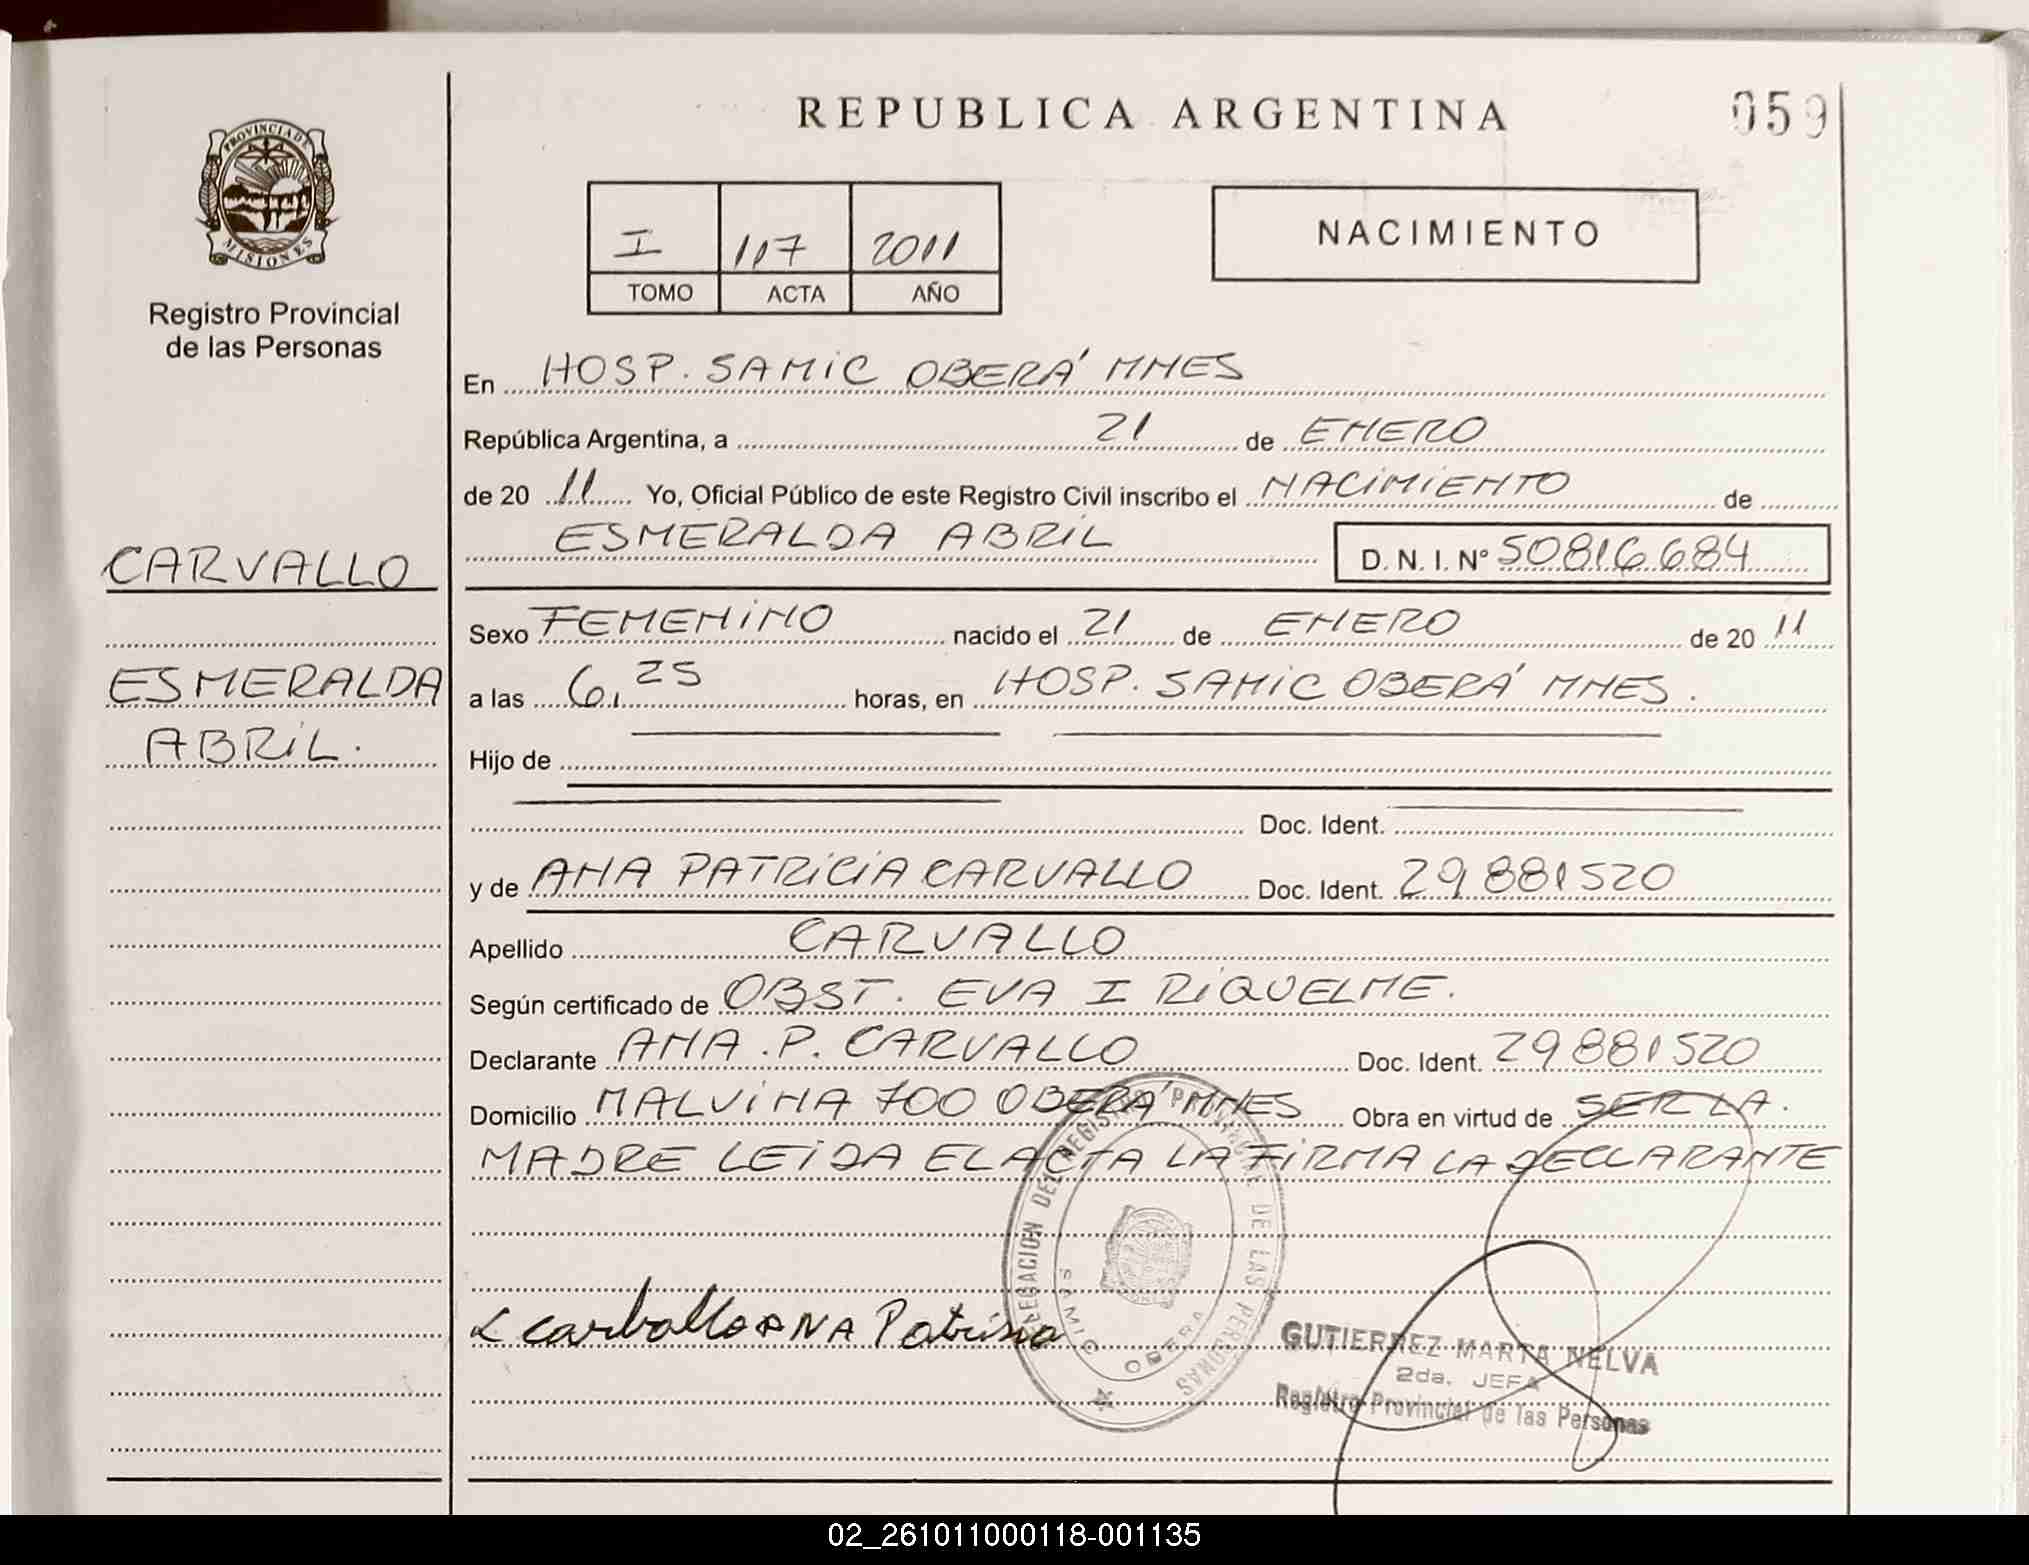 REPUBLICA ARGENTINA
059
PROVINCIA DE
MISIONES
Registro Provincial
de las Personas
I 117 2011
TOMO ACTA AÑO
NACIMIENTO
En HOSP. SAMIC OBERÁ MNES
República Argentina, a 21 de ENERO
de 20 11 Yo, Oficial Público de este Registro Civil inscribo el NACIMIENTO de
ESMERALDA ABRIL D. N. I. N° 50816684
CARVALLO
ESMERALDA
ABRIL.
Sexo FEMENINO nacido el 21 de ENERO de 20 11
a las 6,25 horas, en HOSP. SAMIC OBERÁ MNES.
Hijo de
Doc. Ident.
y de ANA PATRICIA CARVALLO Doc. Ident. 29881520
Apellido CARVALLO
Según certificado de OBST. EVA I RIQUELME.
Declarante ANA .P. CARVALLO Doc. Ident. 29881520
Domicilio MALVINA 700 OBERÁ MNES Obra en virtud de SER LA.
MADRE LEIDA EL ACTA LA FIRMA LA DECLARANTE
DELEGACION DEL REGISTRO PROVINCIAL DE LAS PERSONAS
SAMIC OBERA
carballo ANA Patrisia
GUTIERREZ MARTA NELVA
2da. JEFA
Registro Provincial de las Personas
02_261011000118-001135